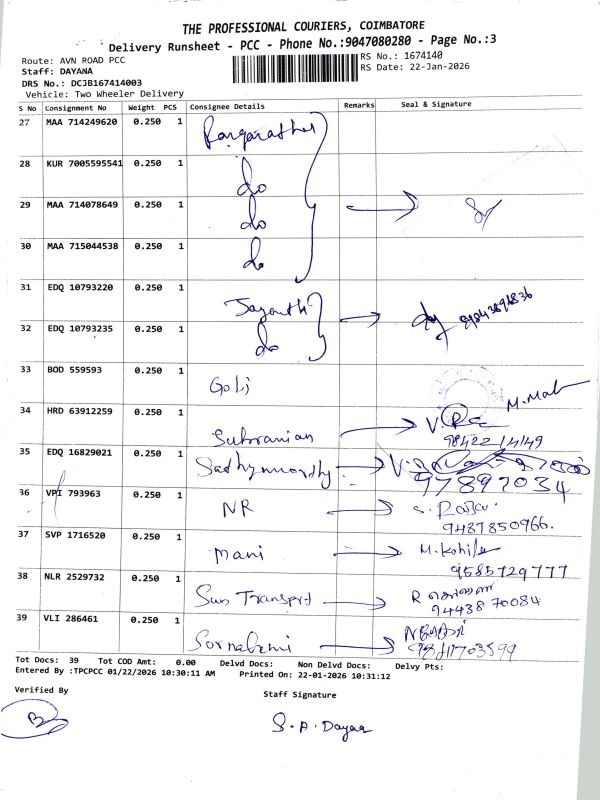 THE PROFESSIONAL COURIERS, COIMBATORE
Delivery Runsheet - PCC - Phone No.:9047080280 - Page No.:3
Route: AVN ROAD PCC
RS No.: 1674140
Staff: DAYANA
RS Date: 22-Jan-2026
DRS No.: DCJB167414003
Vehicle: Two Wheeler Delivery
S No Consignment No Weight PCS Consignee Details Remarks Seal & Signature
27 MAA 714249620 0.250 1
28 KUR 7005595541 0.250 1 do
29 MAA 714078649 0.250 1 do
30 MAA 715044538 0.250 1 do
31 EDQ 10793220 0.250 1 Jayanthi
32 EDQ 10793235 0.250 1 do
33 BOD 559593 0.250 1 Goli
34 HRD 63912259 0.250 1 Subranian
35 EDQ 16829021 0.250 1 Sathymoorthy
36 VPI 793963 0.250 1 NR
9487850966.
37 SVP 1716520 0.250 1 Mani
9585729777
38 NLR 2529732 0.250 1 Sun Transport
9443870084
39 VLI 286461 0.250 1
Tot Docs: 39 Tot COD Amt: 0.00 Delvd Docs: Non Delvd Docs: Delvy Pts:
Entered By :TPCPCC 01/22/2026 10:30:11 AM Printed On: 22-01-2026 10:31:12
Verified By
Staff Signature
S. A. Dayana